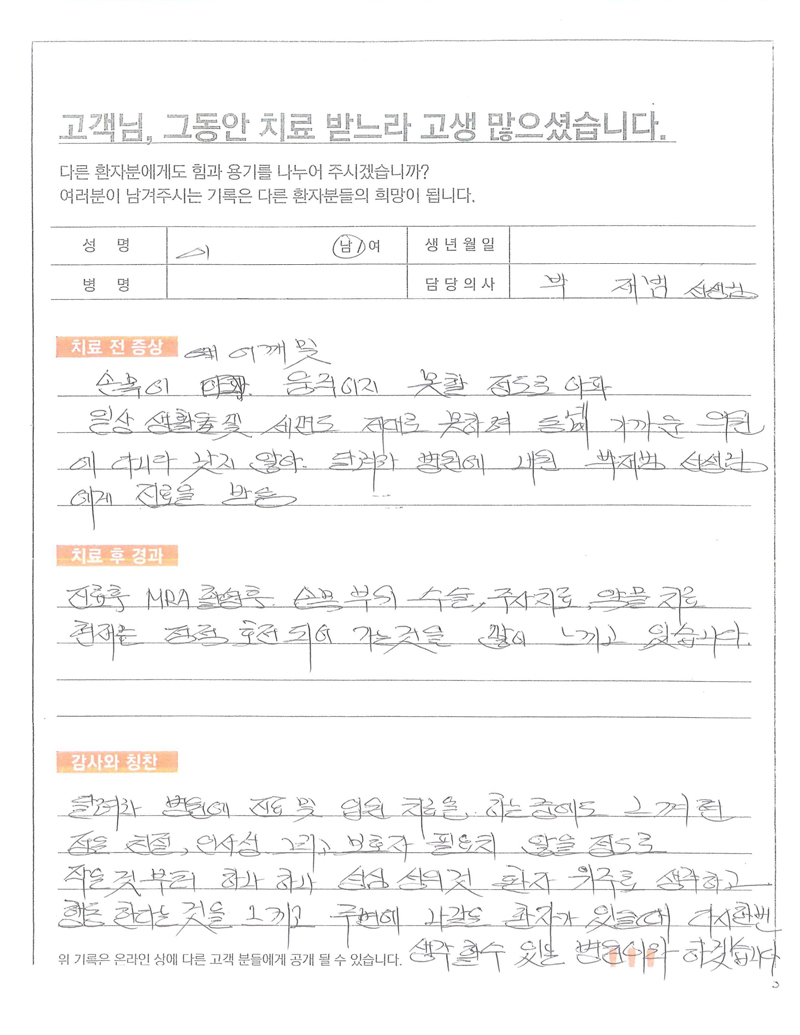 고객님, 그동안 치료 받느라 고생 많으셨습니다.
다른 환자분에게도 힘과 용기를 나누어 주시겠습니까?
여러분이 남겨주시는 기록은 다른 환자분들의 희망이 됩니다.
성 명 이 남/여 생년월일
병 명 담당의사 박 재범 선생님
치료 전 증상 어깨 및
손목이 움직이지 못할 정도로 아파
일상 생활및 세면도 제대로 못하며 동네 가까운 의원
에 다니다 낫지 않아. 달려라 병원에 내원 박재범 선생님
에게 진료을 받음
치료 후 경과
진료후 MRA 촬영후. 손목 부위 수술, 주사치료, 약물 치료
현재는 점점 호전 되어 가는것을 많이 느끼고 있습니다.
감사와 칭찬
달려라 병원에 진료 및 입원 치료을 하는중에도 느껴던
점은 친절, 인사성 그리고 보호자 필요치 않을 정도로
작은것 부터 하나 하나 성심 성의것 환자 위주로 생각하고
행동 한다는 것을 느끼고 주변에 나같은 환자가 있을때 다시한번
생각 할수 있는 병원이라 하겠습니다
위 기록은 온라인 상에 다른 고객 분들에게 공개 될 수 있습니다.